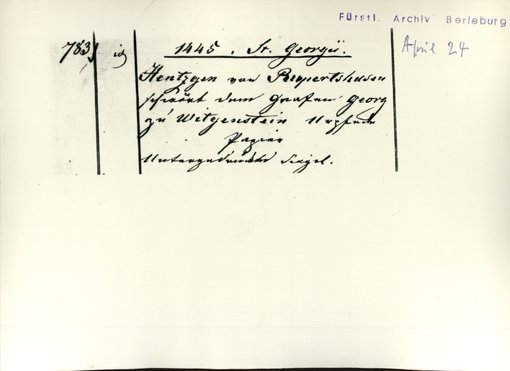 Fürstl. Archiv Berleburg
783
1445. St. Georgii.
April 24
Hentzgen von Rupertshusen
schwört dem Grafen Georg
zu Witgenstein Urfehde
Papier
Untergedrucktes Siegel.